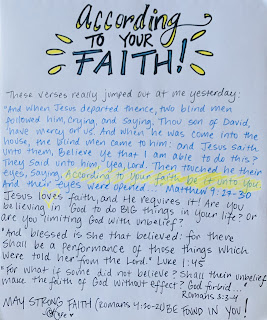 According
TO YOUR
FAITH!
These verses really jumped out at me yesterday:
"And when Jesus departed thence, two blind men
followed him, crying, and saying, Thou son of David,
have mercy on us. And when he was come into the
house, the blind men came to him: and Jesus saith
unto them, Believe ye that I am able to do this?
They said unto him, Yea, Lord. Then touched he their
eyes, saying, According to your faith be it unto you.
And their eyes were opened... Matthew 9:27-30
Jesus loves faith, and He requires it! Are you
believing in God to do BIG things in your life? Or
are you limiting God with unbelief?
"And blessed is she that believed: for there
Shall be a performance of those things which
were told her from the Lord." Luke 1:45
"For what if some did not believe? Shall their unbelief
make the faith of God without effect? God forbid...
Romans 3:3-4
MAY STRONG FAITH (Romans 4:20-21) BE FOUND IN YOU!